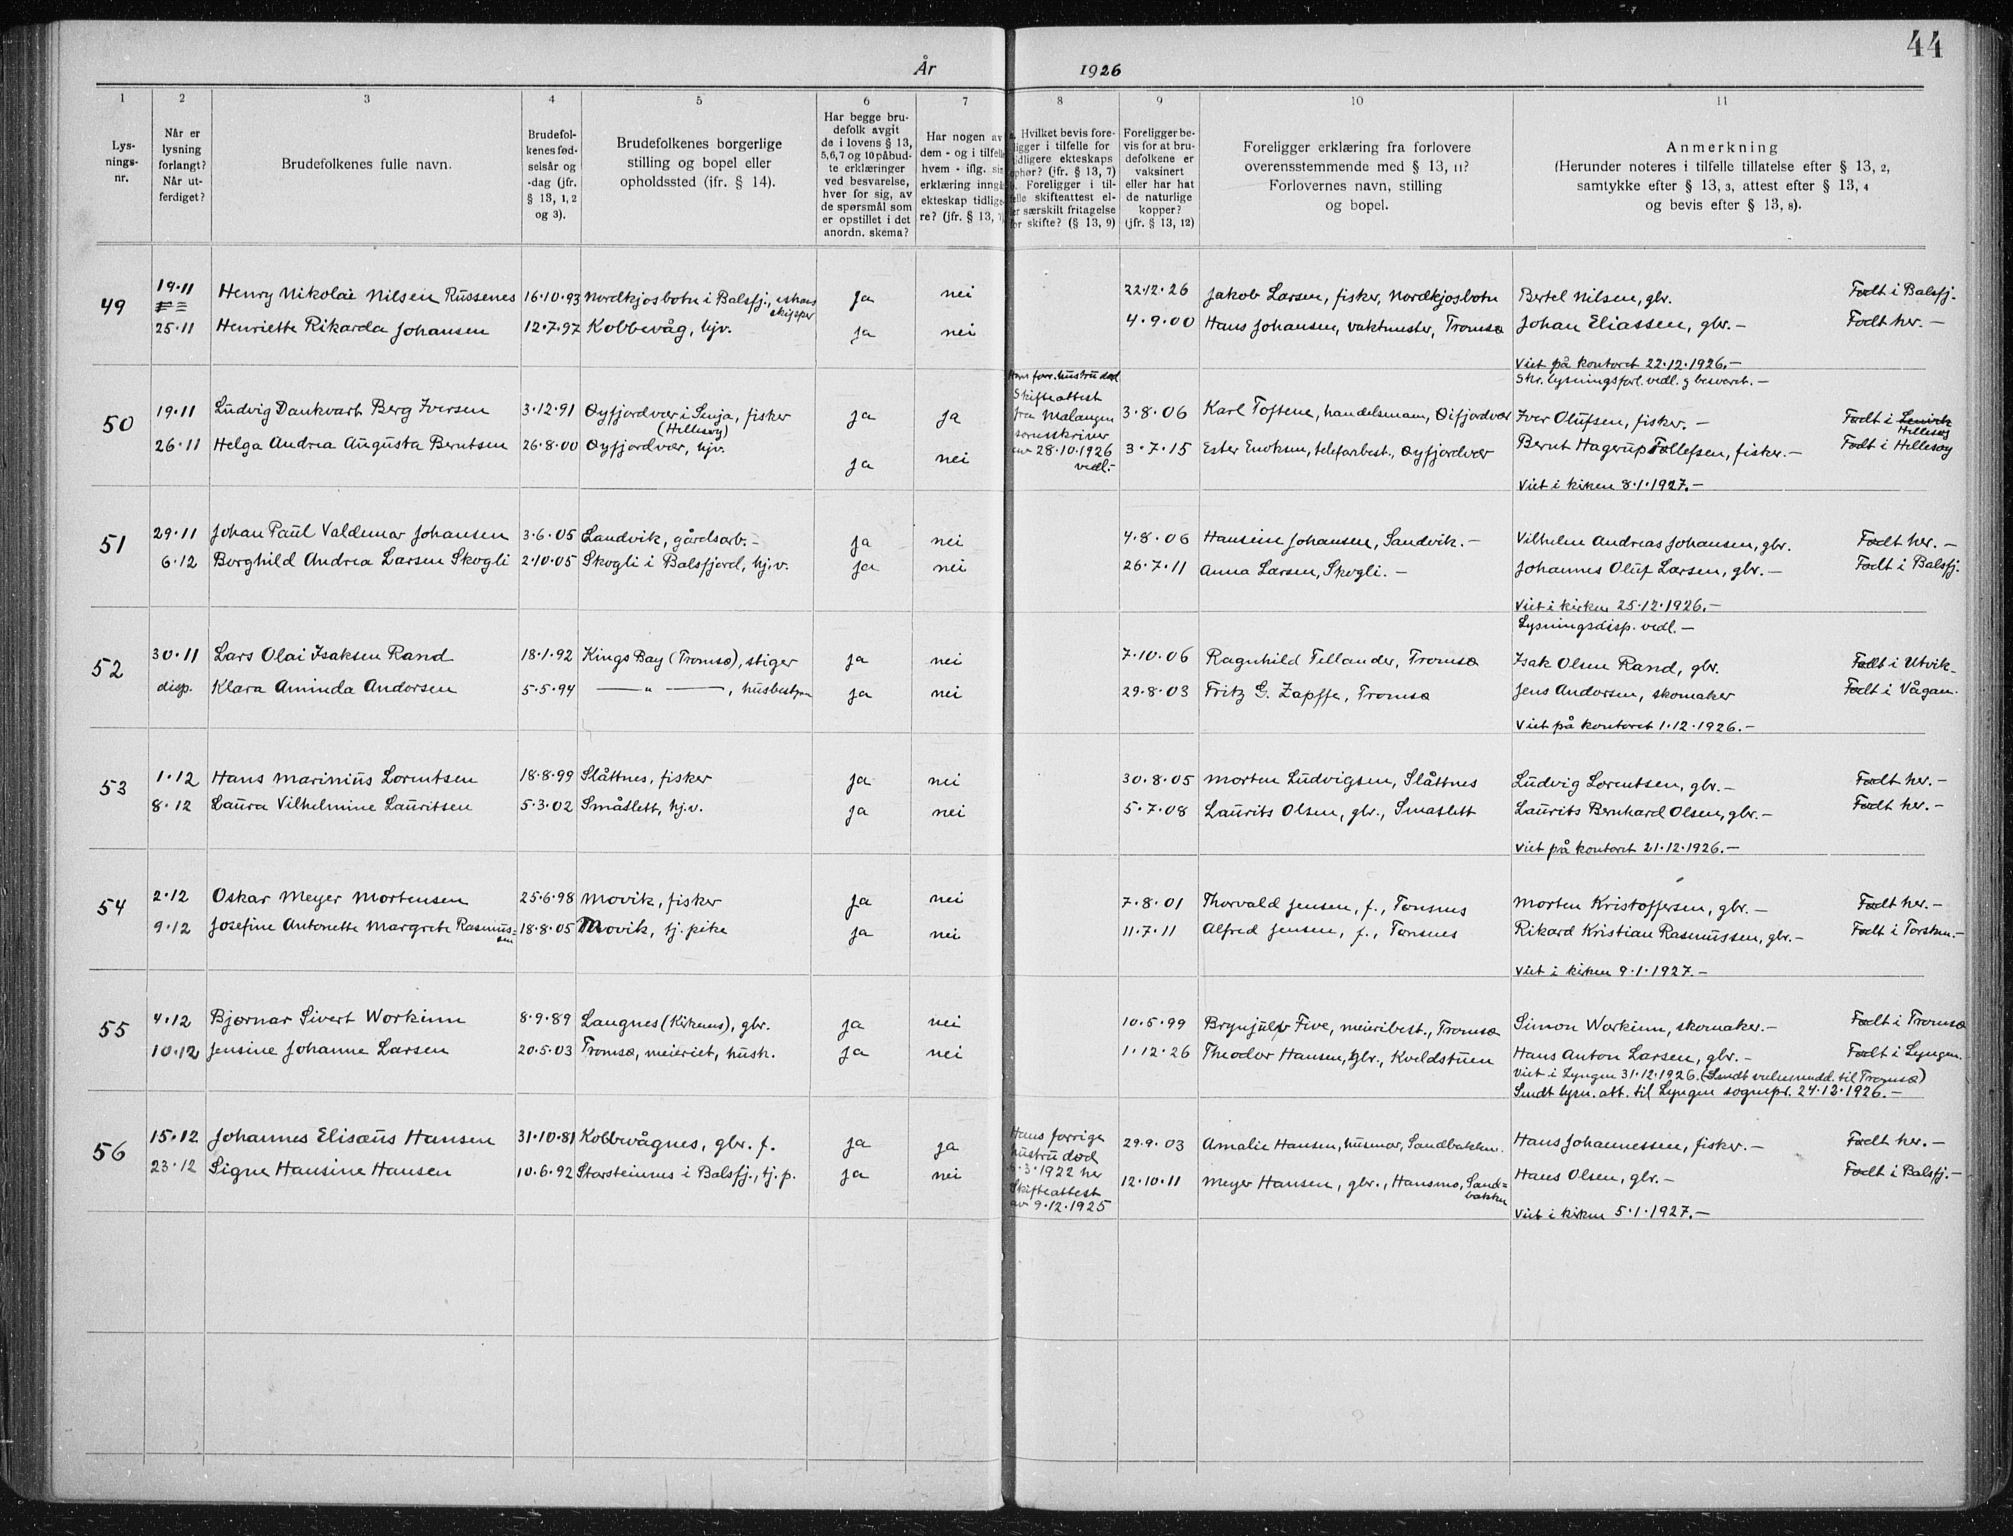 44
År 1926
1
2
3
4
5
6
7
8
9
10
11
Lys-
nings-
nr.
Når er
lysning
forlangt?
Når ut-
ferdiget?
Brudefolkenes fulle navn.
Brudefol-
kenes fød-
selsår og
-dag (jfr.
§ 13, 1, 2
og 3).
Brudefolkenes borgerlige
stilling og bopel eller
opholdssted (ifr. § 14).
Har begge bru-
defolk avgit
de i lovens § 13,
5,6,7 og 10 påbud-
te erklæringer
ved besvarelse,
hver for sig, av
de spørsmål som
er opstillet i det
anordn. skema?
Har nogen av
dem - og i tilfelle
hvem - iflg. sin
erklæring inngå
ekteskap tidlige-
re? (jfr. § 13, 7)
Hvilket bevis fore-
ligger i tilfelle for
tidligere ekteskaps
ophør? (ifr. § 13, 7)
Foreligger i til-
felle skifteattest el-
er særskilt fritagelse
for skifte? (§ 13, 9)
Foreligger be-
vis for at bru-
defolkene er
vaksinert
eller har hat
de naturlige
kopper?
(jfr. § 13, 12)
Foreligger erklæring fra forlovere
overensstemmende med § 13, 11?
Forlovernes navn, stilling
og bopel.
Anmerkning
(Herunder noteres i tilfelle tillatelse efter § 13, 2,
samtykke efter § 13, 3, attest efter § 13, 4
og bevis efter § 13, 8).
49 19.11 Henry Nikolai Nilsen Russenes 16.10.93 Nordkjosbotn i Balsfj., ishavsskipper ja nei 22.12.26 Jakob Larsen, fisker, Nordkjosbotn Bertel Nilsen, gbr. Født i Balsfj.
25.11 Henriette Rikarda Johansen 12.7.97 Kobbevåg, hjv. ja nei 4.9.00 Hans Johansen, vaktmester, Tromsø Johan Eliassen, gbr. – Født her. –
Viet på kontoret 22.12.1926. –
Skr. lysningsforl. vedl. og besvaret. –
50 19.11 Ludvig Dankvart Berg Iversen 3.12.91 Øyfjordvær i Senja, fisker (Hillesøy) ja ja 3.8.06 Karl Toftene, handelsmann, Øifjordvær Iver Olufsen, fisker. – Født i Lenvik Hillesøy
Hans forr. hustru død
Skifteattest
fra Malangen
sorenskriver
av 28.10.1926
vedl. –
26.11 Helga Andrea Augusta Berntsen 26.8.00 Øyfjordvær, hjv. ja nei 3.7.15 Ester Enoksen, telefonbest., Øyfjordvær Bernt Hagerup Tollefsen, fisker. – Født i Hillesøy
Viet i kirken 8.1.1927. –
51 29.11 Johan Paul Valdemar Johansen 3.6.05 Sandvik, gårdsarb. – ja nei 4.8.06 Hansine Johansen, Sandvik. – Vilhelm Andreas Johansen, gbr. Født her. –
6.12 Borghild Andrea Larsen Skogli 2.10.05 Skogli i Balsfjord, hj.v. ja nei 26.7.11 Anna Larsen, Skogli. – Johannes Oluf Larsen, gbr. – Født i Balsfj.
Viet i kirken 25.12.1926. –
Lysningsdisp. vedl. –
52 30.11 Lars Olai Isaksen Rand 18.1.92 Kings Bay (Tromsø), stiger ja nei 7.10.06 Ragnhild Tellander, Tromsø Isak Olsen Rand, gbr. Født i Utvik.
disp. Klara Aminda Andersen 5.5.94 — " —, husbestyr. ja nei 29.8.03 Fritz G. Zapffe, Tromsø Jens Andersen, skomaker Født i Vågan.
Viet på kontoret 1.12.1926. –
53 1.12 Hans Marinius Lorentsen 18.8.99 Slåttnes, fisker ja nei 30.8.05 Morten Ludvigsen, Slåttnes Ludvig Lorentsen, gbr. – Født her. –
8.12 Laura Vilhelmine Lauritsen 5.3.02 Småslett, hj.v. ja nei 5.7.08 Laurits Olsen, gbr., Småslett Laurits Bernhard Olsen, gbr. – Født her. –
Viet på kontoret 21.12.1926. –
54 2.12 Oskar Meyer Mortensen 25.6.98 Movik, fisker ja nei 7.8.01 Thorvald Jensen, f., Tønsnes Morten Kristoffersen, gbr. – Født her. –
9.12 Josefine Antonette Margrete Rasmussen 18.8.05 Movik, tj. pike ja nei 11.7.11 Alfred Jensen, f., Tønsnes Rikard Kristian Rasmussen, gbr. – Født i Torsken. –
Viet i kirken 9.1.1927. –
55 4.12 Bjørnar Sivert Workinn 8.9.89 Langnes (Kirkenes), gbr. ja nei 10.5.99 Brynjulf Five, meieribest., Tromsø Simon Workinn, skomaker. – Født i Tromsø
10.12 Jensine Johanne Larsen 20.5.03 Tromsø, meieriet, hush. ja nei 1.12.26 Theodor Hansen, gbr., Kveldstuen Hans Anton Larsen, gbr. – Født i Lyngen.
Viet i Lyngen 31.12.1926. (Sendt vielsesmedd. til Tromsø)
Sendt lysn. att. til Lyngen sognepr. 24.12.1926. –
56 15.12 Johannes Elisæus Hansen 31.10.81 Kobbevågnes, gbr. f. ja ja 29.9.03 Amalie Hansen, husmor, Sandbakken. Hans Johannessen, fisker. – Født her. –
Hans forrige
hustru død
6.3.1922 her
Skifteattest
av 9.12.1925
23.12 Signe Hansine Hansen 10.6.92 Storsteinnes i Balsfj., tj. p. ja nei 12.10.11 Meyer Hansen, gbr., Hansmo, Sandbakken Hans Olsen, gbr. – Født i Balsfj. –
Viet i kirken 5.1.1927. –